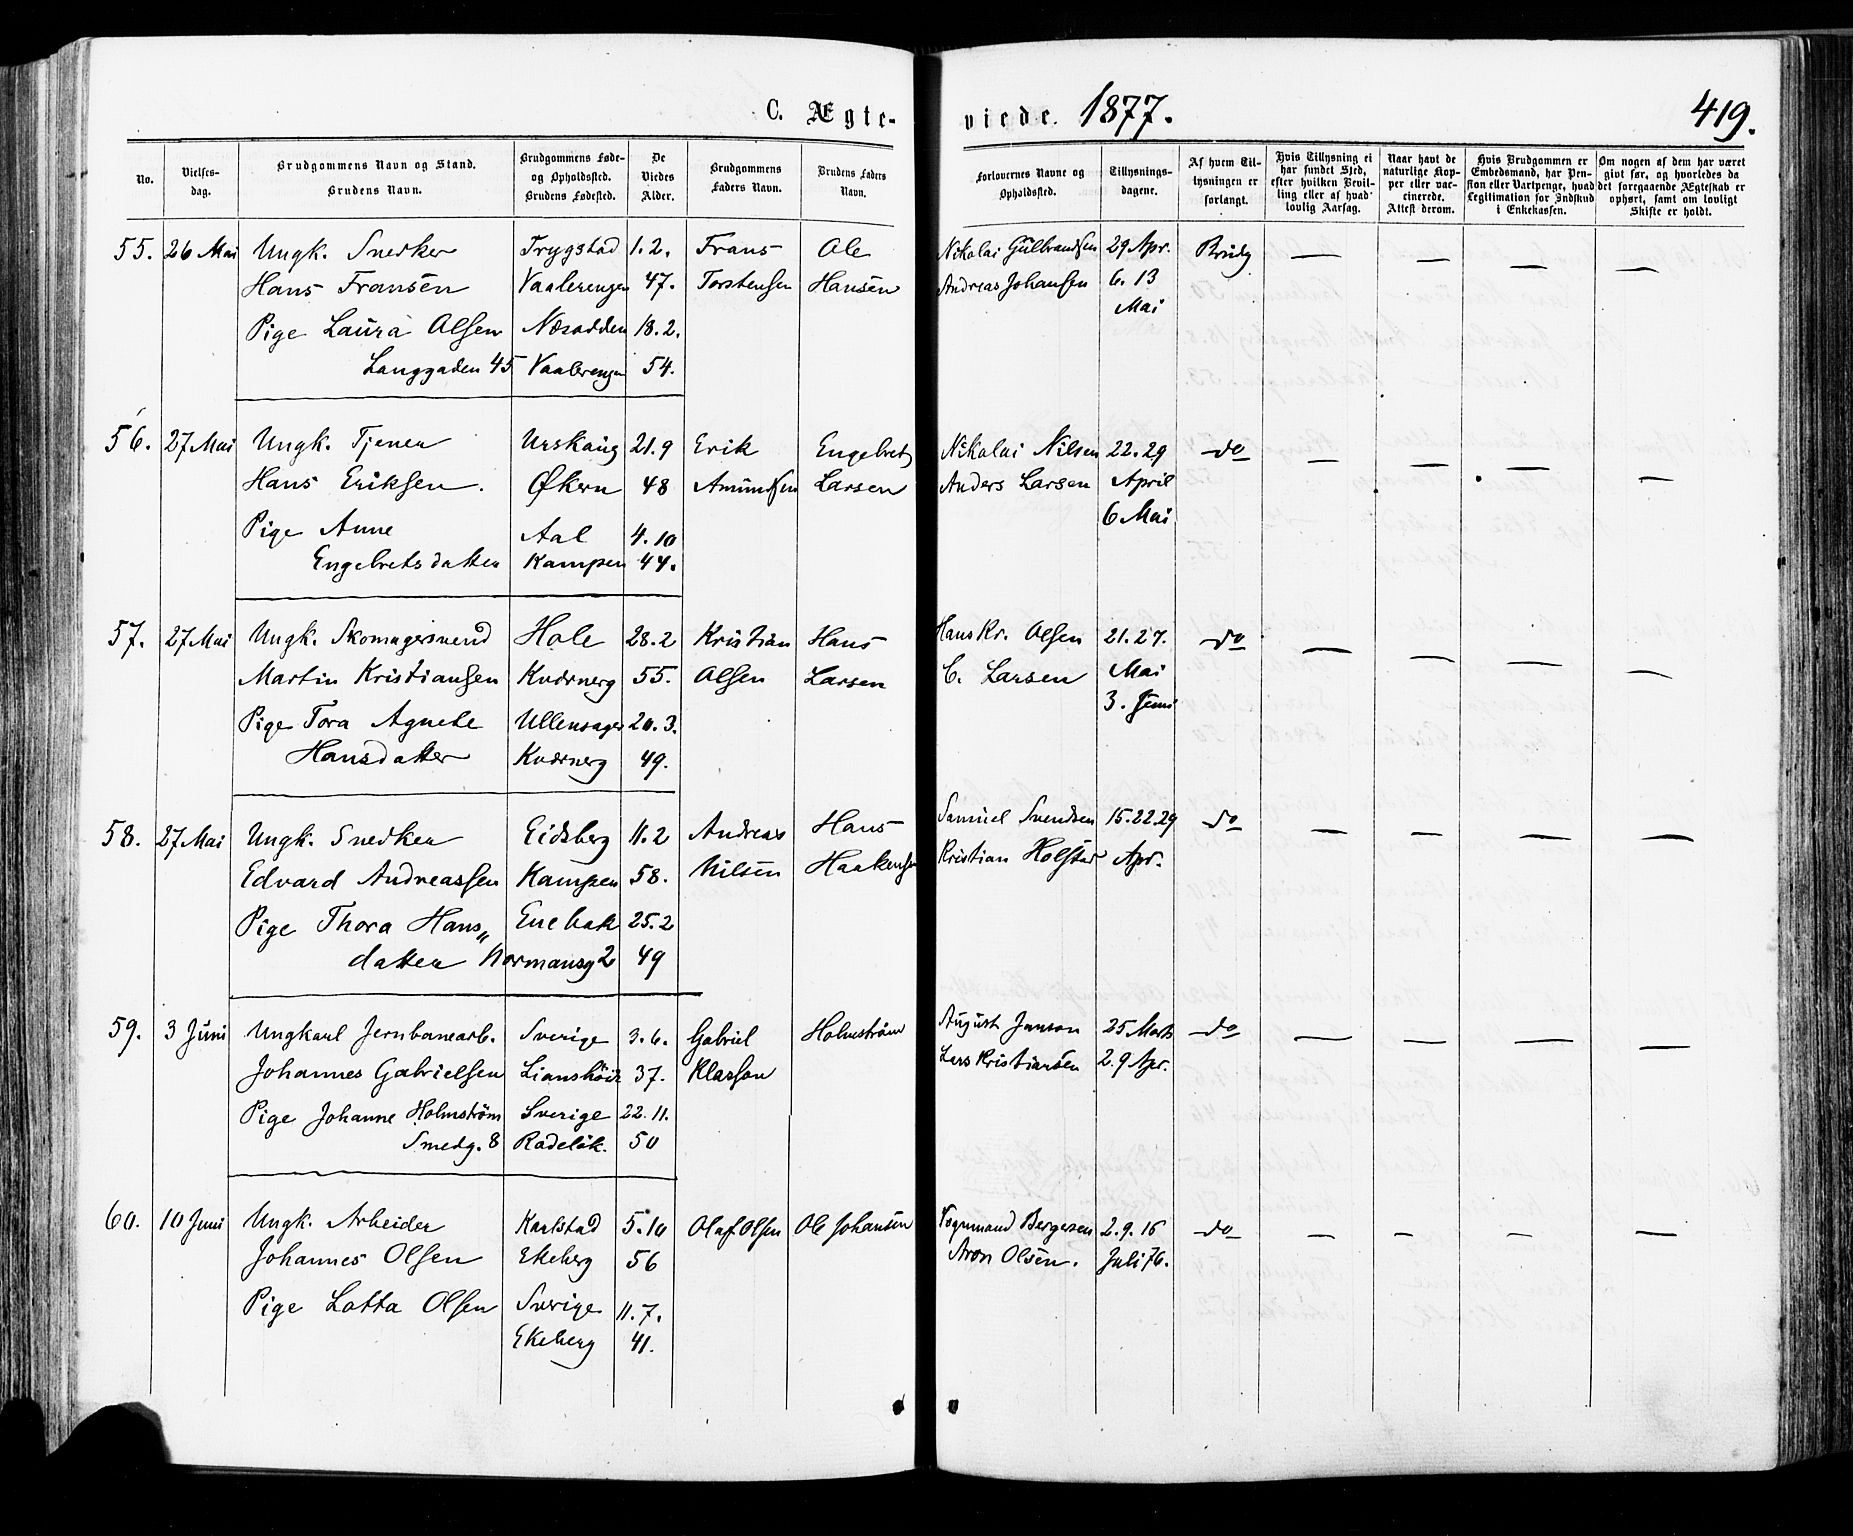 C. Ægte- viede. 1877. 419.
No.
Vielses-
dag.
Brudgommens Navn og Stand.
Brudens Navn.
Brudgommens Føde-
og Opholdssted.
Brudens Fødested.
De
Viedes
Alder.
Brudgommens
Faders Navn.
Brudens Faders
Navn.
Forlovernes Navne og
Opholdssted.
Tillysnings-
dagene.
Af hvem Til-
lysningen er
forlangt.
Hvis Tillysning ei
har fundet Sted,
efter hvilken Bevil-
ling eller af hvad
lovlig Aarsag.
Naar havt de
naturlige Kop-
per eller vac-
cinerede.
Attest derom.
Hvis Brudgommen er
Embedsmand, har Pen-
sion eller Vartpenge, hvad
Legitimation for Indskud
i Enkekassen.
Om nogen af dem har været
givt før, og hvorledes da
det foregaaende Ægteskab er
ophørt, samt om lovligt
Skifte er holdt.
55. 26 Mai Ungk. Snedker Trygstad 1.2. Frans Ole Nikolai Gulbrandsen 29 Apr. Brudg — — — —
Hans Fransen Vaalerengen 47. Torstensen Hansen Andreas Johansen 6. 13
Mai
Pige Laura Olsen Næsodden 18.2.
Langgaden 45 Vaalerengen 54.
56. 27 Mai Ungk. Tjener Urskaug 21.9 Erik Engebret Nikolai Nilsen 22.29 do — — — —
Hans Eriksen. Økern 48 Amundsen Larsen Anders Larsen April
6 Mai
Pige Anne Aal 4.10
Engebretsdatter Kampen 44.
57. 27 Mai Ungk. Skomagersvend Hole 28.2 Kristian Hans Hans Kr. Olsen 21.27. do — — — —
Martin Kristiansen Kværnerg 55. Olsen Larsen C. Larsen Mai
3. Juni
Pige Tora Agnete Ullensager 20.3.
Hansdatter Kværnerg 49.
58. 27 Mai Ungk. Snedker Eidsberg 11.2 Andreas Hans Samuel Svendsen 15.22.29 do — — — —
Edvard Andreassen Kampen 58. Nilsen Haakensen Kristian Holstad Apr.
Pige Thora Hans„ Enebak 25.2
datter Normansg 2 49
59. 3 Juni Ungkarl Jernbanearb. Sverige 3.6. Gabriel Holmstrøm August Janson 25 Marts do — — — —
Johannes Gabrielsen Lianshöid 37. Klasson Lars Kristiansen 2.9 Apr.
Pige Johanne Holmstrøm Sverige 22.11.
Smedg. 8 Radeløk. 50
60. 10 Juni Ungk. Arbeider Karlstad 5.10 Olaf Olsen Ole Johansen Bergersen 2.9.16 do — — — —
Johannes Olsen Ekeberg 56 Aron Olsen. Juli 76.
Pige Lotta Olsen Sverige 11.7.
Ekeberg 41.